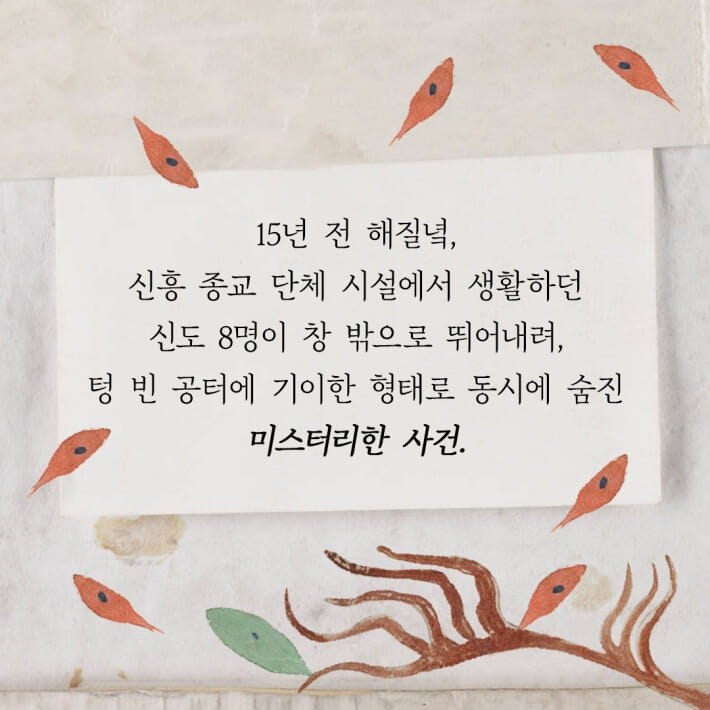 15년 전 해질녘,
신흥 종교 단체 시설에서 생활하던
신도 8명이 창 밖으로 뛰어내려,
텅 빈 공터에 기이한 형태로 동시에 숨진
미스터리한 사건.